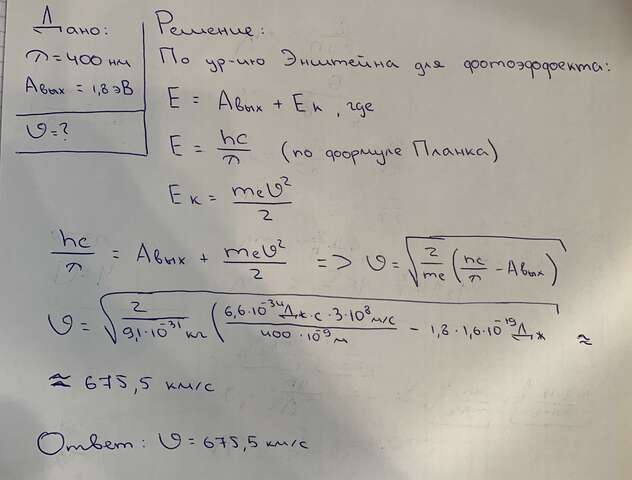 Дано:
λ = 400 нм
Aвых = 1,8 эВ
υ = ?
Решение:
По ур-ию Энштейна для фотоэффекта:
E = Aвых + Eк, где
E = hc/λ (по формуле Планка)
Eк = meυ²/2
hc/λ = Aвых + meυ²/2 => υ = √(2/me (hc/λ - Aвых))
υ = √(2/9,1·10⁻³¹ кг (6,6·10⁻³⁴ Дж·с·3·10⁸ м/с / 400·10⁻⁹ м - 1,8·1,6·10⁻¹⁹ Дж)) ≈
≈ 675,5 км/с
Ответ: υ = 675,5 км/с